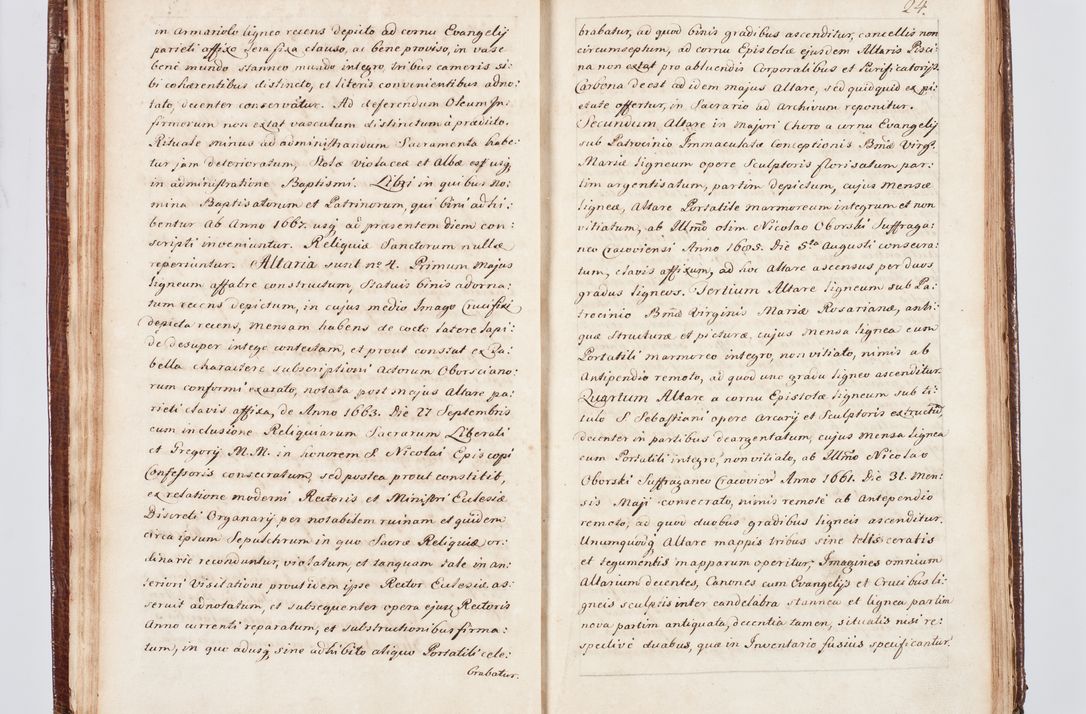 in armariolo ligneo recens depicto ad cornu Evangelij
parieti affixo sera fixa clauso, ac bene proviso, in vase
bene mundo stanneo mundo integro, tribus cameris si:
bi cohærentibus distincto, et literis convenientibus adno:
tato, decenter conservatur. Ad deferendum Oleum In:
firmorum non extat vasculum distinctum à prædicto.
Rituale minus ad administrandum Sacramenta habe:
tur jam deterioratum, Stolæ violacea et Alba est usq,
in administratione Baptismi. Libri in quibus no:
mina Baptisatorum et Patrinorum, qui bini adhi:
bentur Ab Anno 1667. usq ad præsentem diem con:
scripti inveniuntur. Reliquiæ Sanctorum nullæ
reperiuntur. Altaria sunt no 4. Primum majus
ligneum affabre constructum, Statuis binis adorna:
tum recens depictum, in cujus medio Imago Crucifixi
depicta recens, mensam habens de cocto latere lapi:
de desuper integro contectam, et prout constat ex Ta:
bella charactere subscriptioni Actorum Oborsciano:
rum conformi exarato, notata post majus Altare pa:
rieti clavis affixa, de Anno 1663. Die 27 Septembris
cum inclusione Reliquiarum Sacrarum Liberali
et Gregorij M.M. in honorem S. Nicolai Episcopi
Confessoris consecratum, sed postea prout constitit,
ex relatione moderni Rectoris et Ministri Eulesiæ
Discreti Organarij per notabilem ruinam et quidem
circa ipsum Sepulchrum in quo Sacræ Reliquiæ or:
dinarie reconduntur, violatum, et tanquam tale in an:
teriori Visitatione prout idem ipse Rector Eulesiæ as:
seruit adnotatum, et subsequenter opera ejusq Rectoris
Anno currenti reparatum, et substructionibus firma:
tum, in quo adusq sine adhibito aliquo Portatili cele:
brabatur.
24.
brabatur, ad quod binis gradibus ascenditur, cancellis non
circumseptum, ad cornu Epistolæ ejusdem Altaris Pisci:
na non extat pro abluendis Corporalibus et Purificatorijs.
Carbona deest ad idem majus Altare, sed quidquid ex pi:
etate offertur, in Sacrario ad Archivum reponitur.
Secundum Altare in majori Choro a cornu Evangelij
sub Patrocinio Immaculatæ Conceptionis Bmæ Virgs.
Mariæ ligneum opere Sculptoris florisatum par:
tim argentisatum, partim depictum, cujus mensæ
lignea, Altare Portatile marmoreum integrum et non
vitiatum, ab Illmo olim Nicolao Oborski Suffraga:
neo Cracoviensi Anno 1685. Die 5ta Augusti consecra:
tum, clavis affixum, ad hoc Altare ascensus per duos
gradus ligneos. Tertium Altare ligneum sub Pa:
trocinio Bmæ Virginis Mariæ Rosarianæ, anti:
quæ structuræ et picturæ, cujus mensa lignea cum
Portatili marmoreo integro, non vitiato, nimis ab
Antipendio remoto, ad quod uno gradu ligneo ascenditur.
Quartum Altare a cornu Epistolæ ligneum sub ti:
tulo S Sebastiani opere Arcarij et Sculptoris extructu,
decenter in partibus deargentatum, cujus mensa lignea
cum Portatili integro, non vitiato, ab Illmo Nicolao
Oborski Suffraganeo Cracovien Anno 1661. Die 31. Men:
sis Maji consecrato, nimis remote ab Antependio
remoto, ad quod duobus gradibus ligneis ascenditur.
Unumquodq Altare mappis tribus sine tellis ceratis
et tegumentis mapparum operitur, Imagines omnium
Altarium decentes, Canones cum Evangelijs et Crucibus li:
gneis sculptis inter candelabra stannea et lignea partim
nova partim antiquata, decentia tamen, situatis nisi re:
spective duabus, quæ in Inventario fusius specificantur.